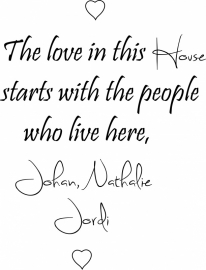 The love in this House
starts with the people
who live here,
Johan, Nathalie
Jordi